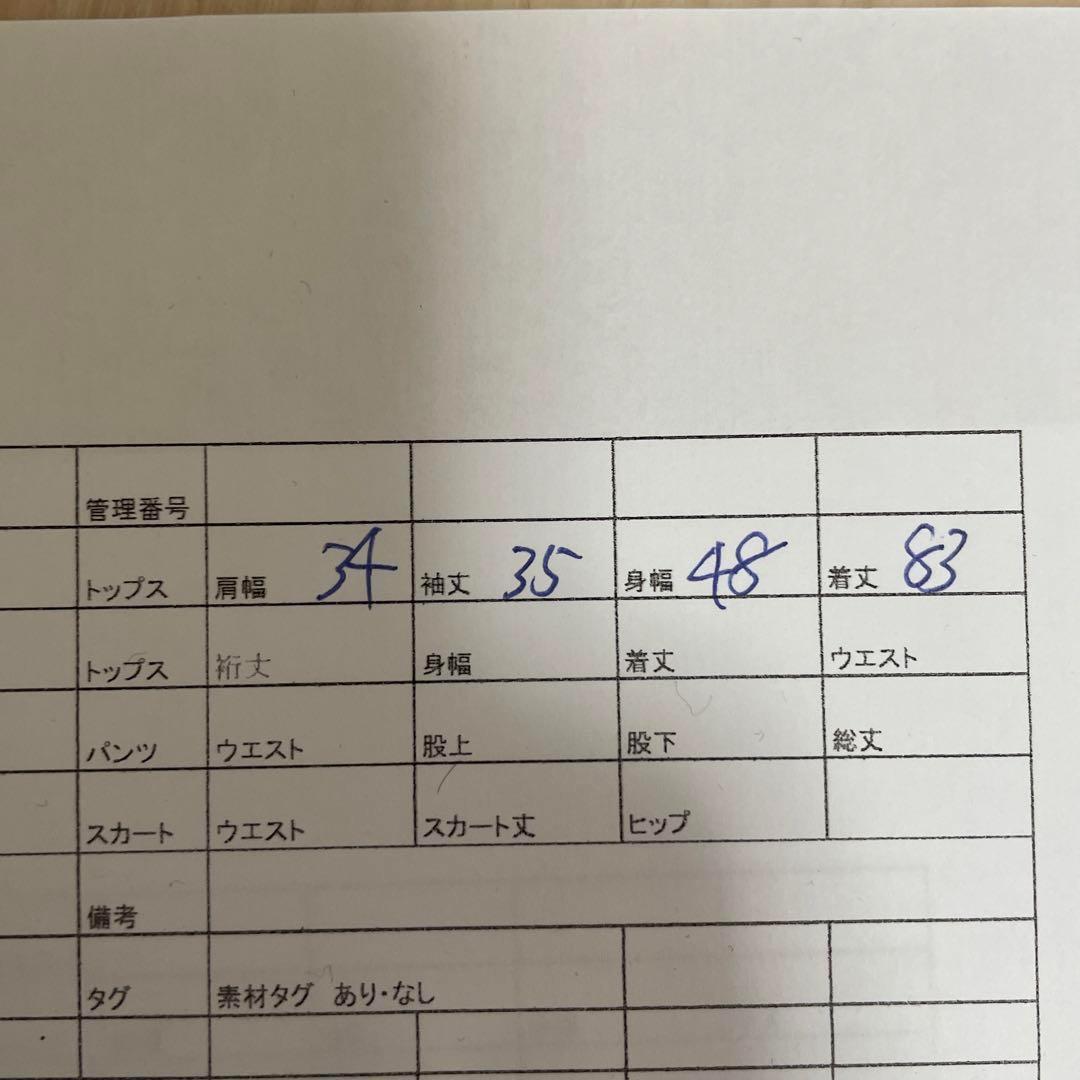 管理番号
トップス 肩幅 34 袖丈 35 身幅 48 着丈 83
トップス 裄丈 身幅 着丈 ウエスト
パンツ ウエスト 股上 股下 総丈
スカート ウエスト スカート丈 ヒップ
備考
タグ 素材タグ あり・なし